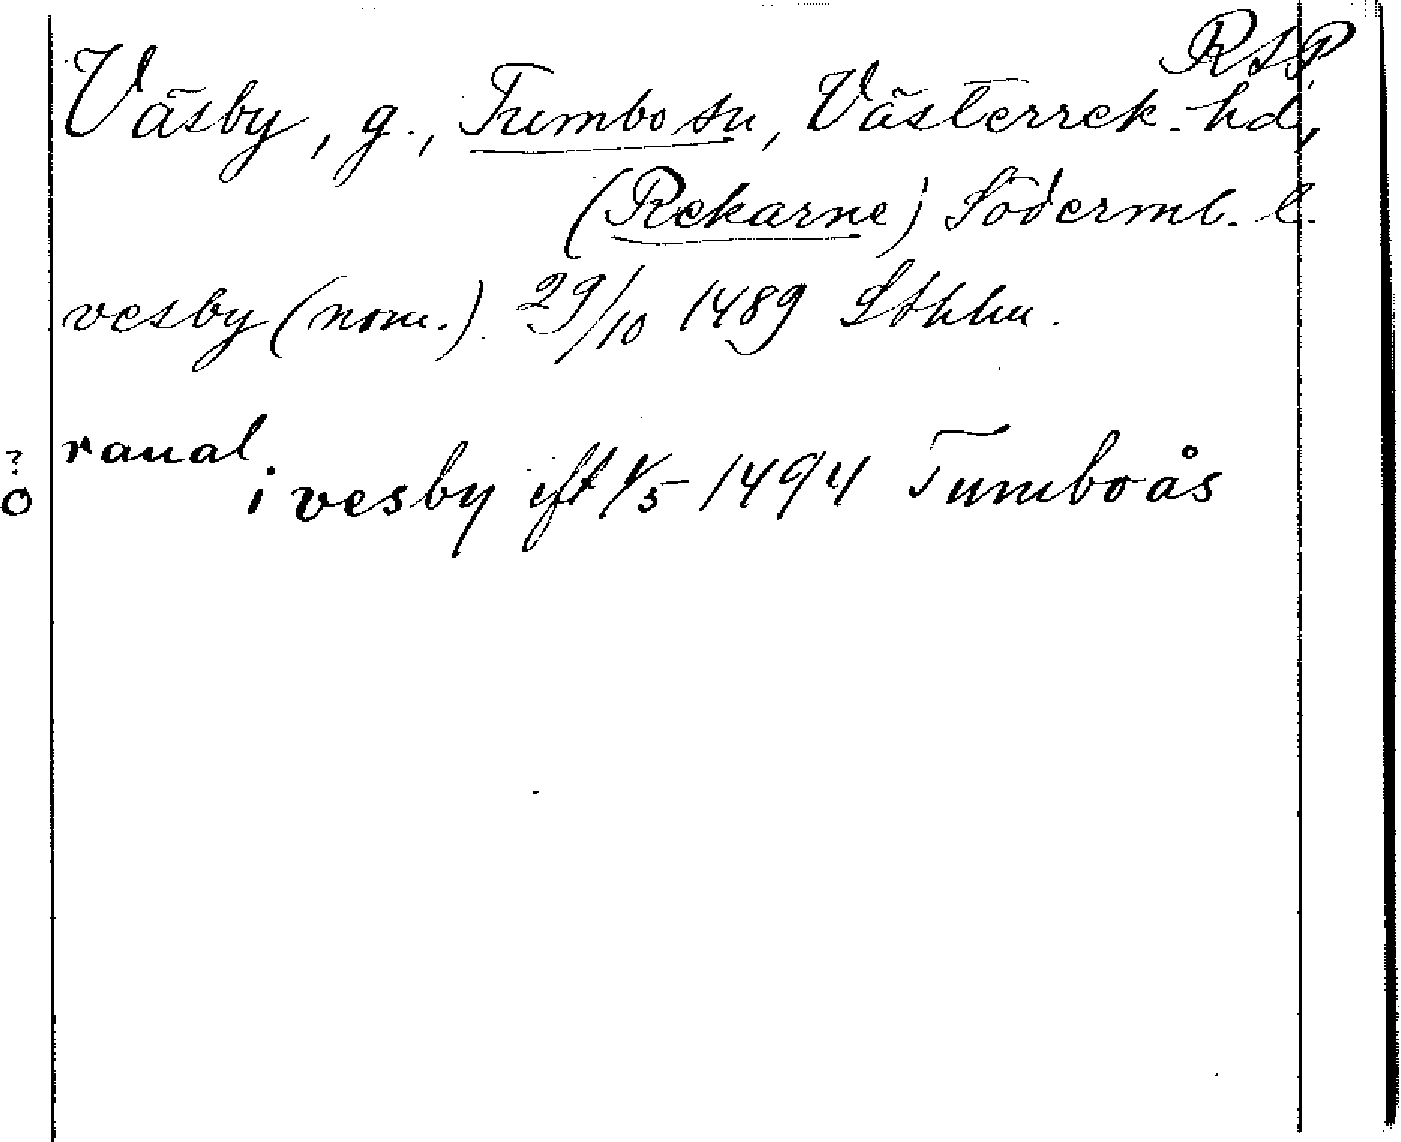 RSP
Väsby, g., Tumbo sn, Västerrek. hd,
(Rekarne) Söderml. l.
vesby (nom.) 29/10 1489 Sthlm.
ranal.
? O i vesby eft 1/5 1494 Tumboås